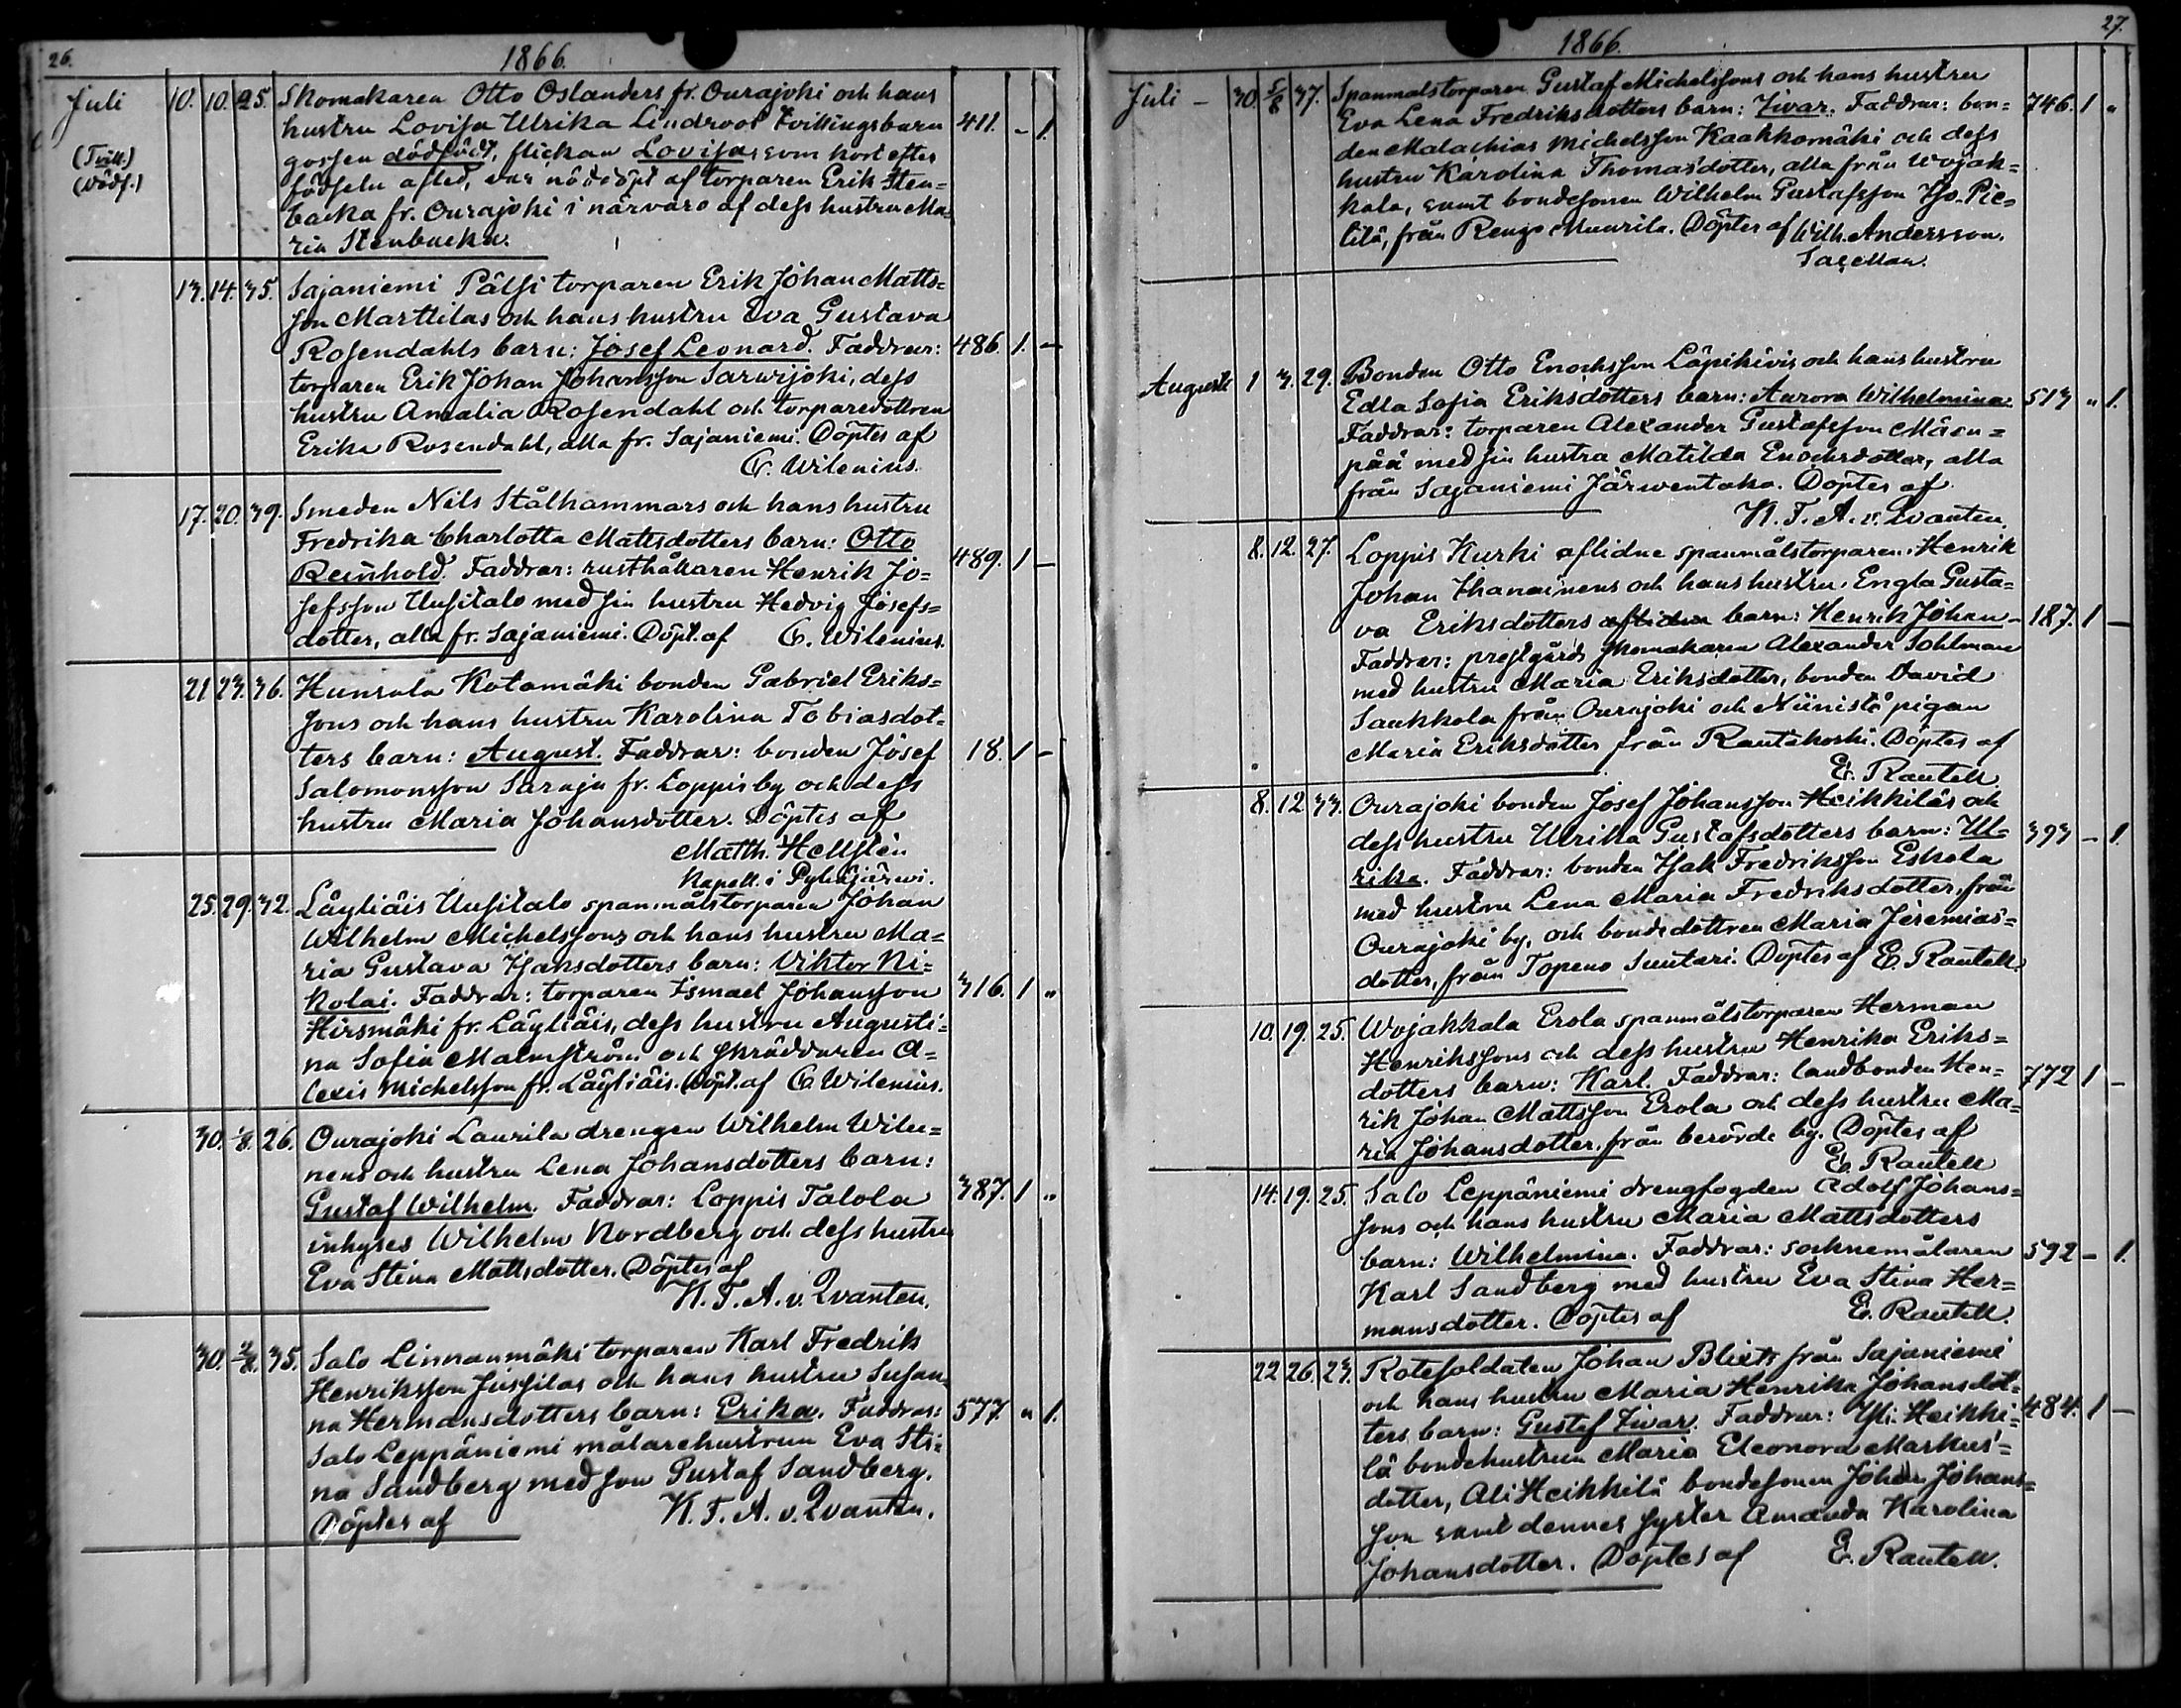 26.
1866.
Juli 10. 10. 25. Skomakaren Otto Oslanders fr. Ourajoki och hans
hustru Lovisa Ulrika Lindroos tvillingsbarn 411. - 1.
(Tvill.) gossen dödfödt, flickan Lovisa, som kort efter
(dödf.) födseln afled, var nöddöpt af torparen Erik Sten=
backa fr. Ourajoki i närvaro af dess hustru Ma=
ria Stenbacka.
13. 14. 35. Sajaniemi Pälsi torparen Erik Johan Matts=
son Marttilas och hans hustru Eva Gustava
Rosendahls barn: Josef Leonard. Faddrar: 486. 1. -
torparen Erik Johan Johansson Sarwijoki, dess
hustru Amalia Rosendahl och torparedottren
Erika Rosendahl, alla fr. Sajaniemi. Döptes af
G. Wilenius.
17. 20. 39. Smeden Nils Stålhammars och hans hustru
Fredrika Charlotta Mattsdotters barn: Otto
Reinhold. Faddrar: rusthållaren Henrik Jo= 489. 1 -
sefsson Uusitalo med sin hustru Hedvig Josefs=
dotter, alla fr. Sajaniemi. Döpt. af G. Wilenius.
21 23. 36. Hunsala Kotamäki bonden Gabriel Eriks=
sons och hans hustru Karolina Tobiasdot=
ters barn: August. Faddrar: bonden Josef 18. 1 -
Salomonsson Saraja fr. Loppis by och dess
hustru Maria Johansdotter. Döptes af
Matth. Hellstén
Kapell. i Pyhäjärwi.
25. 29. 32. Läyliäis Uusitalo spanmålstorparen Johan
Wilhelm Michelssons och hans hustru Ma=
ria Gustava Isaksdotters barn: Viktor Ni=
kolai. Faddrar: torparen Ismael Johansson 316. 1 "
Hirsmäki fr. Läyliäis, dess hustru Augusti=
na Sofia Malmström och skräddaren A=
lexis Michelsson fr. Läyliäis. Döpt. af G. Wilenius.
30. 1/8. 26. Ourajoki Laurila drengen Wilhelm Wile=
nens och hustru Lena Johansdotters barn:
Gustaf Wilhelm. Faddrar: Loppis Talola 387. 1 "
inhyses Wilhelm Nordberg och dess hustru
Eva Stina Mattsdotter. Döptes af
K. T. A. v. Qvanten.
30. 2/8. 35. Salo Linnanmäki torparen Karl Fredrik
Henriksson Jussilas och hans hustru Susan=
na Hermansdotters barn: Erika. Faddrar: 577. " 1.
Salo Leppäniemi målarehustrun Eva Sti=
na Sandberg med son Gustaf Sandberg.
Döptes af K. T. A. v. Qvanten.
27.
1866.
Juli - 30. 5/8 37. Spanmålstorparen Gustaf Michelssons och hans hustru
Eva Lena Fredriksdotters barn: Iivar. Faddrar: bon= 746. 1 "
den Malachias Michelsson Kaakkomäki och dess
hustru Karolina Thomasdotter, alla från Wojak=
kala, samt bondesonen Wilhelm Gustafsson Iso-Pie=
tilä, från Rengo Muurila. Döptes af Wilh. Andersson.
Sacellan.
Augusti 1 3. 29. Bonden Otto Enochsson Läpikivis och hans hustru
Edla Sofia Eriksdotters barn: Aurora Wilhelmina. 513 " 1.
Faddrar: torparen Alexander Gustafsson Mäen=
pää med sin hustru Matilda Enochsdotter, alla
från Sajaniemi Järwentaka. Döptes af
K. T. A. v. Qvanten.
8. 12. 27. Loppis Kurki aflidne spanmålstorparen Henrik
Johan Ihanainens och hans hustru Engla Gusta=
va Eriksdotters aflidna barn: Henrik Johan - 187. 1 -
Faddrar: prestgårds skomakaren Alexander Sohlman
med hustru Maria Eriksdotter, bonden David
Saukkola från Ourajoki och Niinistö pigan
Maria Eriksdotter från Rautakoski. Döptes af
E. Rautell
8. 12 33. Ourajoki bonden Josef Johansson Heikkiläs och
dess hustru Ulrika Gustafsdotters barn: Ul= 393 - 1.
rika. Faddrar: bonden Isak Fredriksson Eskola
med hustru Lena Maria Fredriksdotter, från
Ourajoki by, och bondedottren Maria Jeremias=
dotter, från Topeno Suntari. Döptes af E. Rautell
10. 19. 25. Wojakkala Erola spanmålstorparen Herman
Henrikssons och dess hustru Henrika Eriks=
dotters barn: Karl. Faddrar: landbonden Hen= 772 1 -
rik Johan Mattsson Erola och dess hustru Ma=
ria Johansdotter, från berörde by. Döptes af
E. Rautell
14. 19. 25. Salo Leppäniemi drengfogden Adolf Johans=
sons och hans hustru Maria Mattsdotters
barn: Wilhelmina. Faddrar: socknemålaren 592 - 1.
Karl Sandberg med hustru Eva Stina Her=
mansdotter. Döptes af E. Rautell.
22 26. 23. Rotesoldaten Johan Blixts från Sajaniemi
och hans hustru Maria Henrika Johansdot=
ters barn: Gustaf Iivar. Faddrar: Yli-Heikki= 484. 1 -
lä bondehustrun Maria Eleonora Markus=
dotter, Ali Heikkilä bondesonen Johan Johans=
son samt dennes syster Amanda Karolina
Johansdotter. Döptes af E. Rautell.